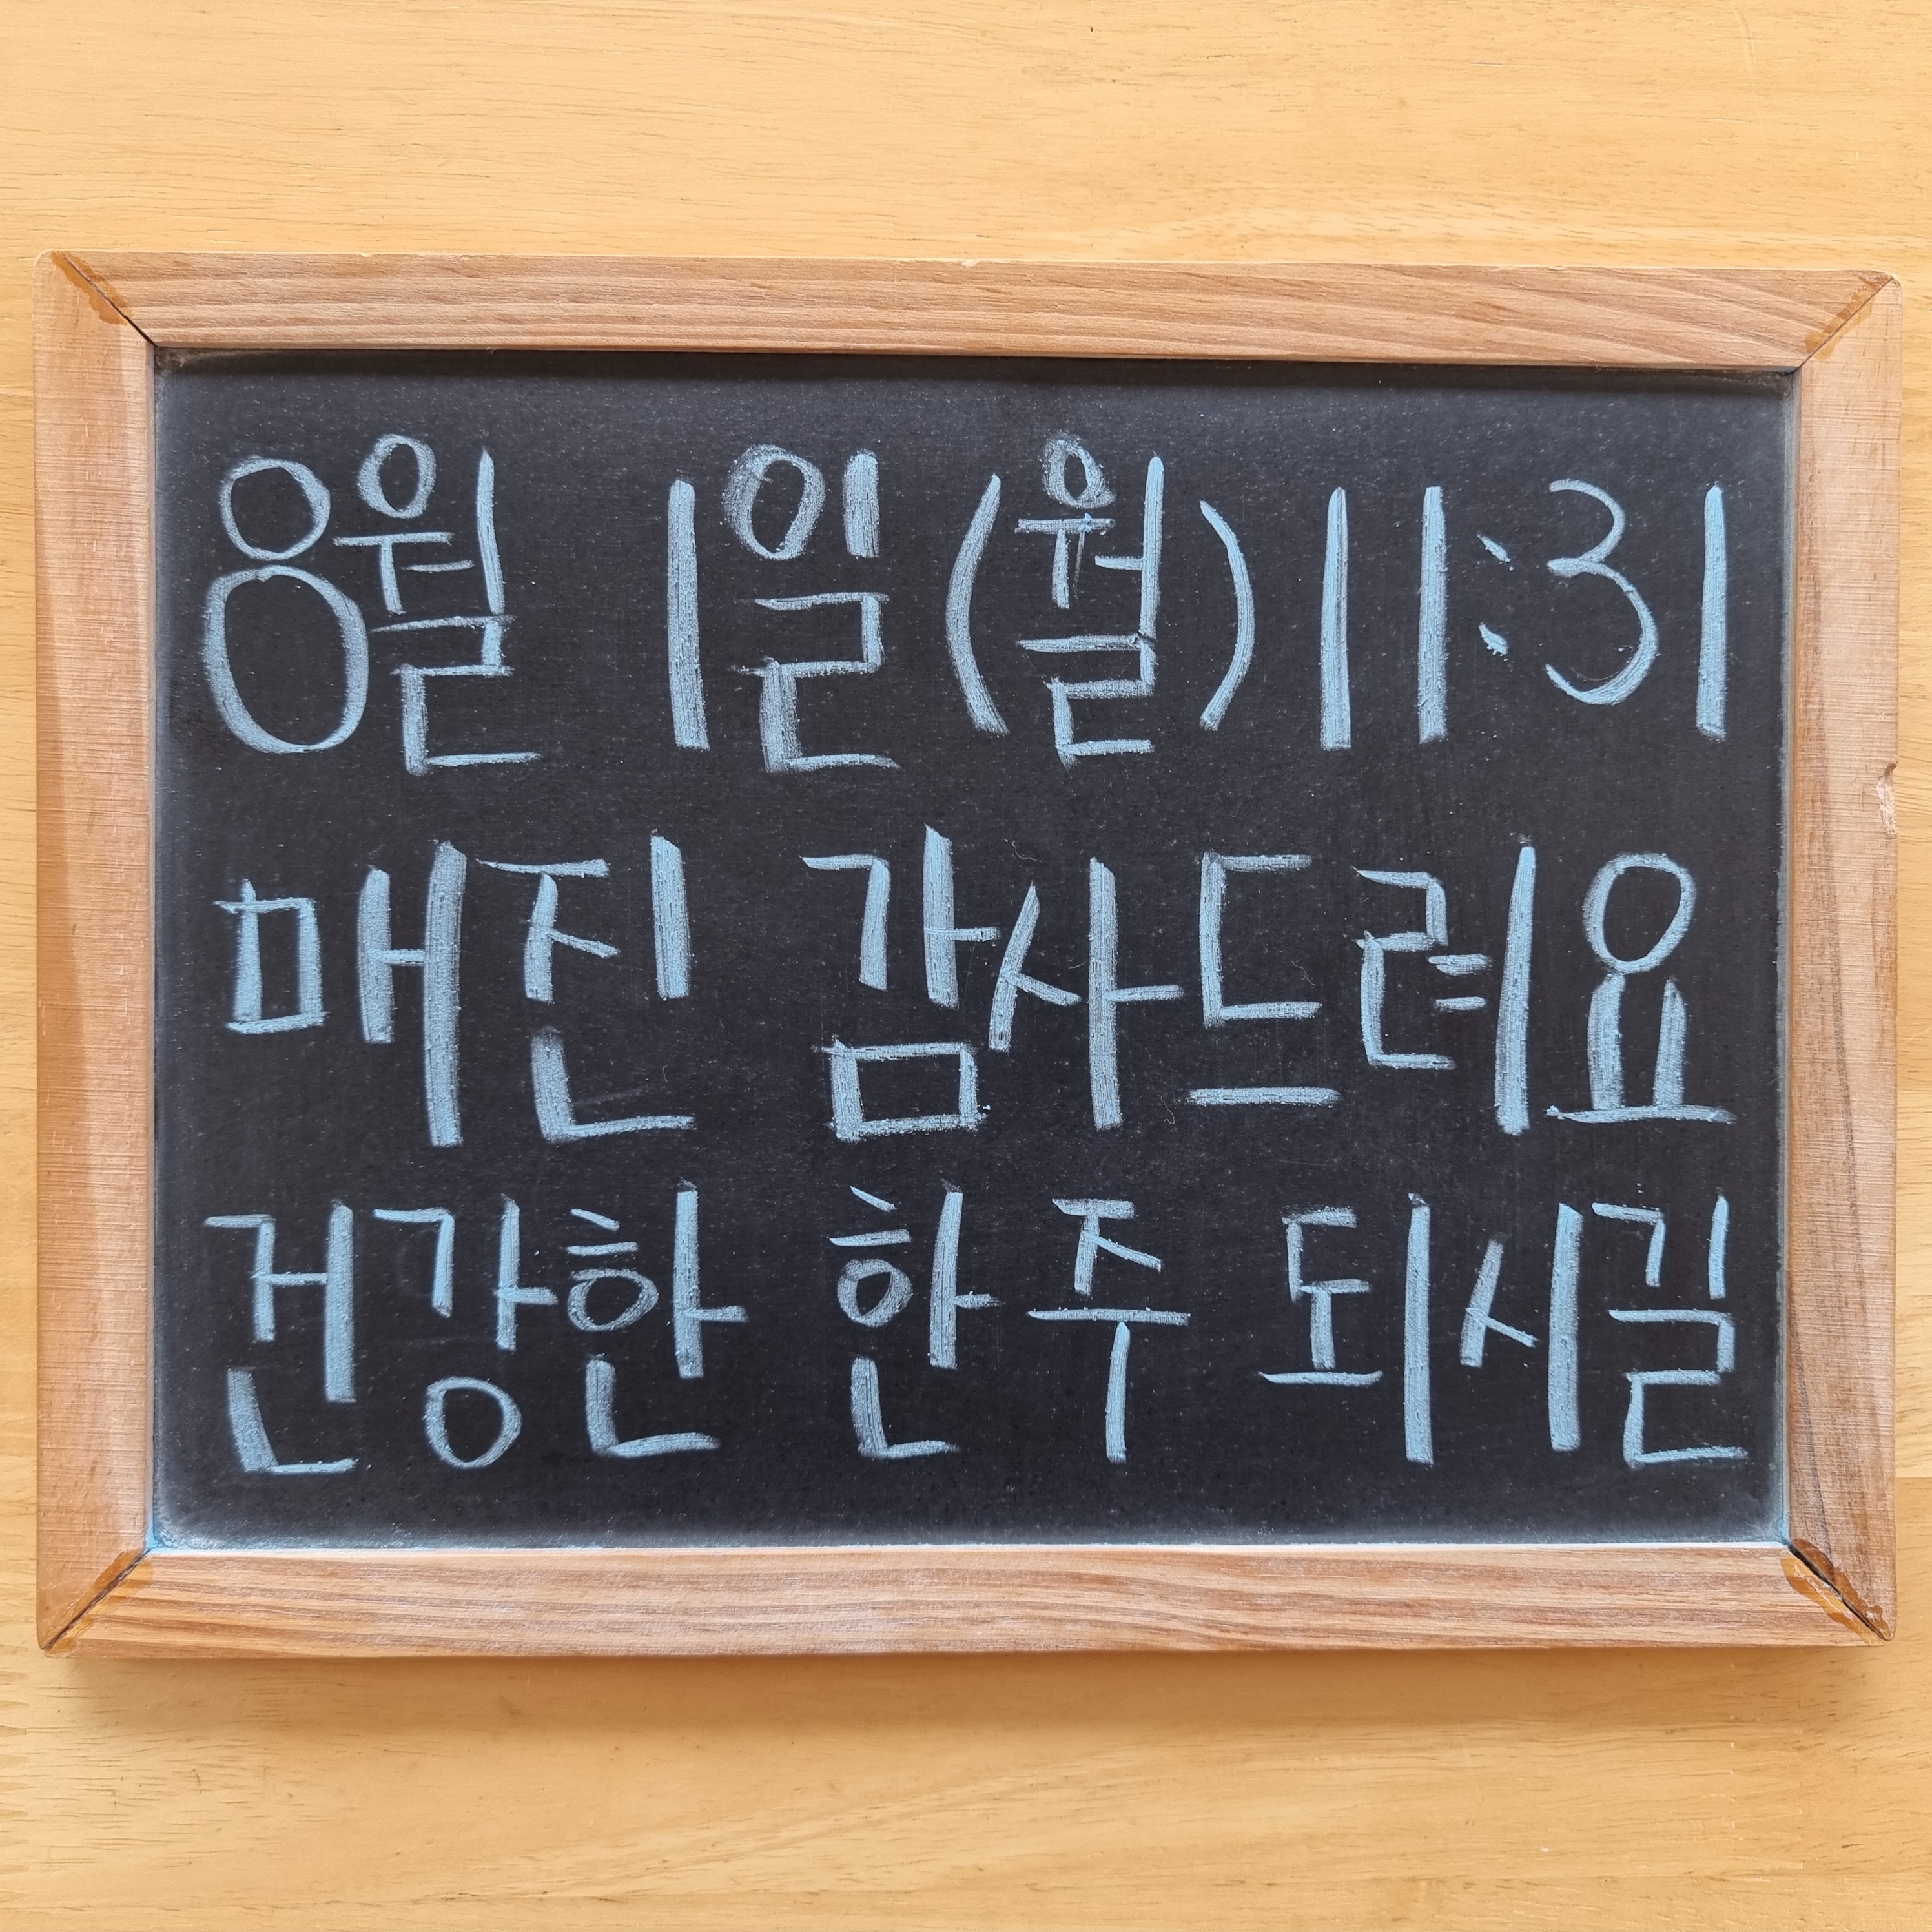 8월 1일(월)11:31
매진 감사드려요
건강한 한주 되시길